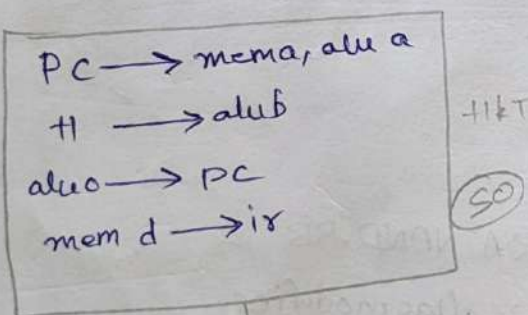 PC → mema, alu a
+1 → alub
aluo → PC
mem d → ir
S0